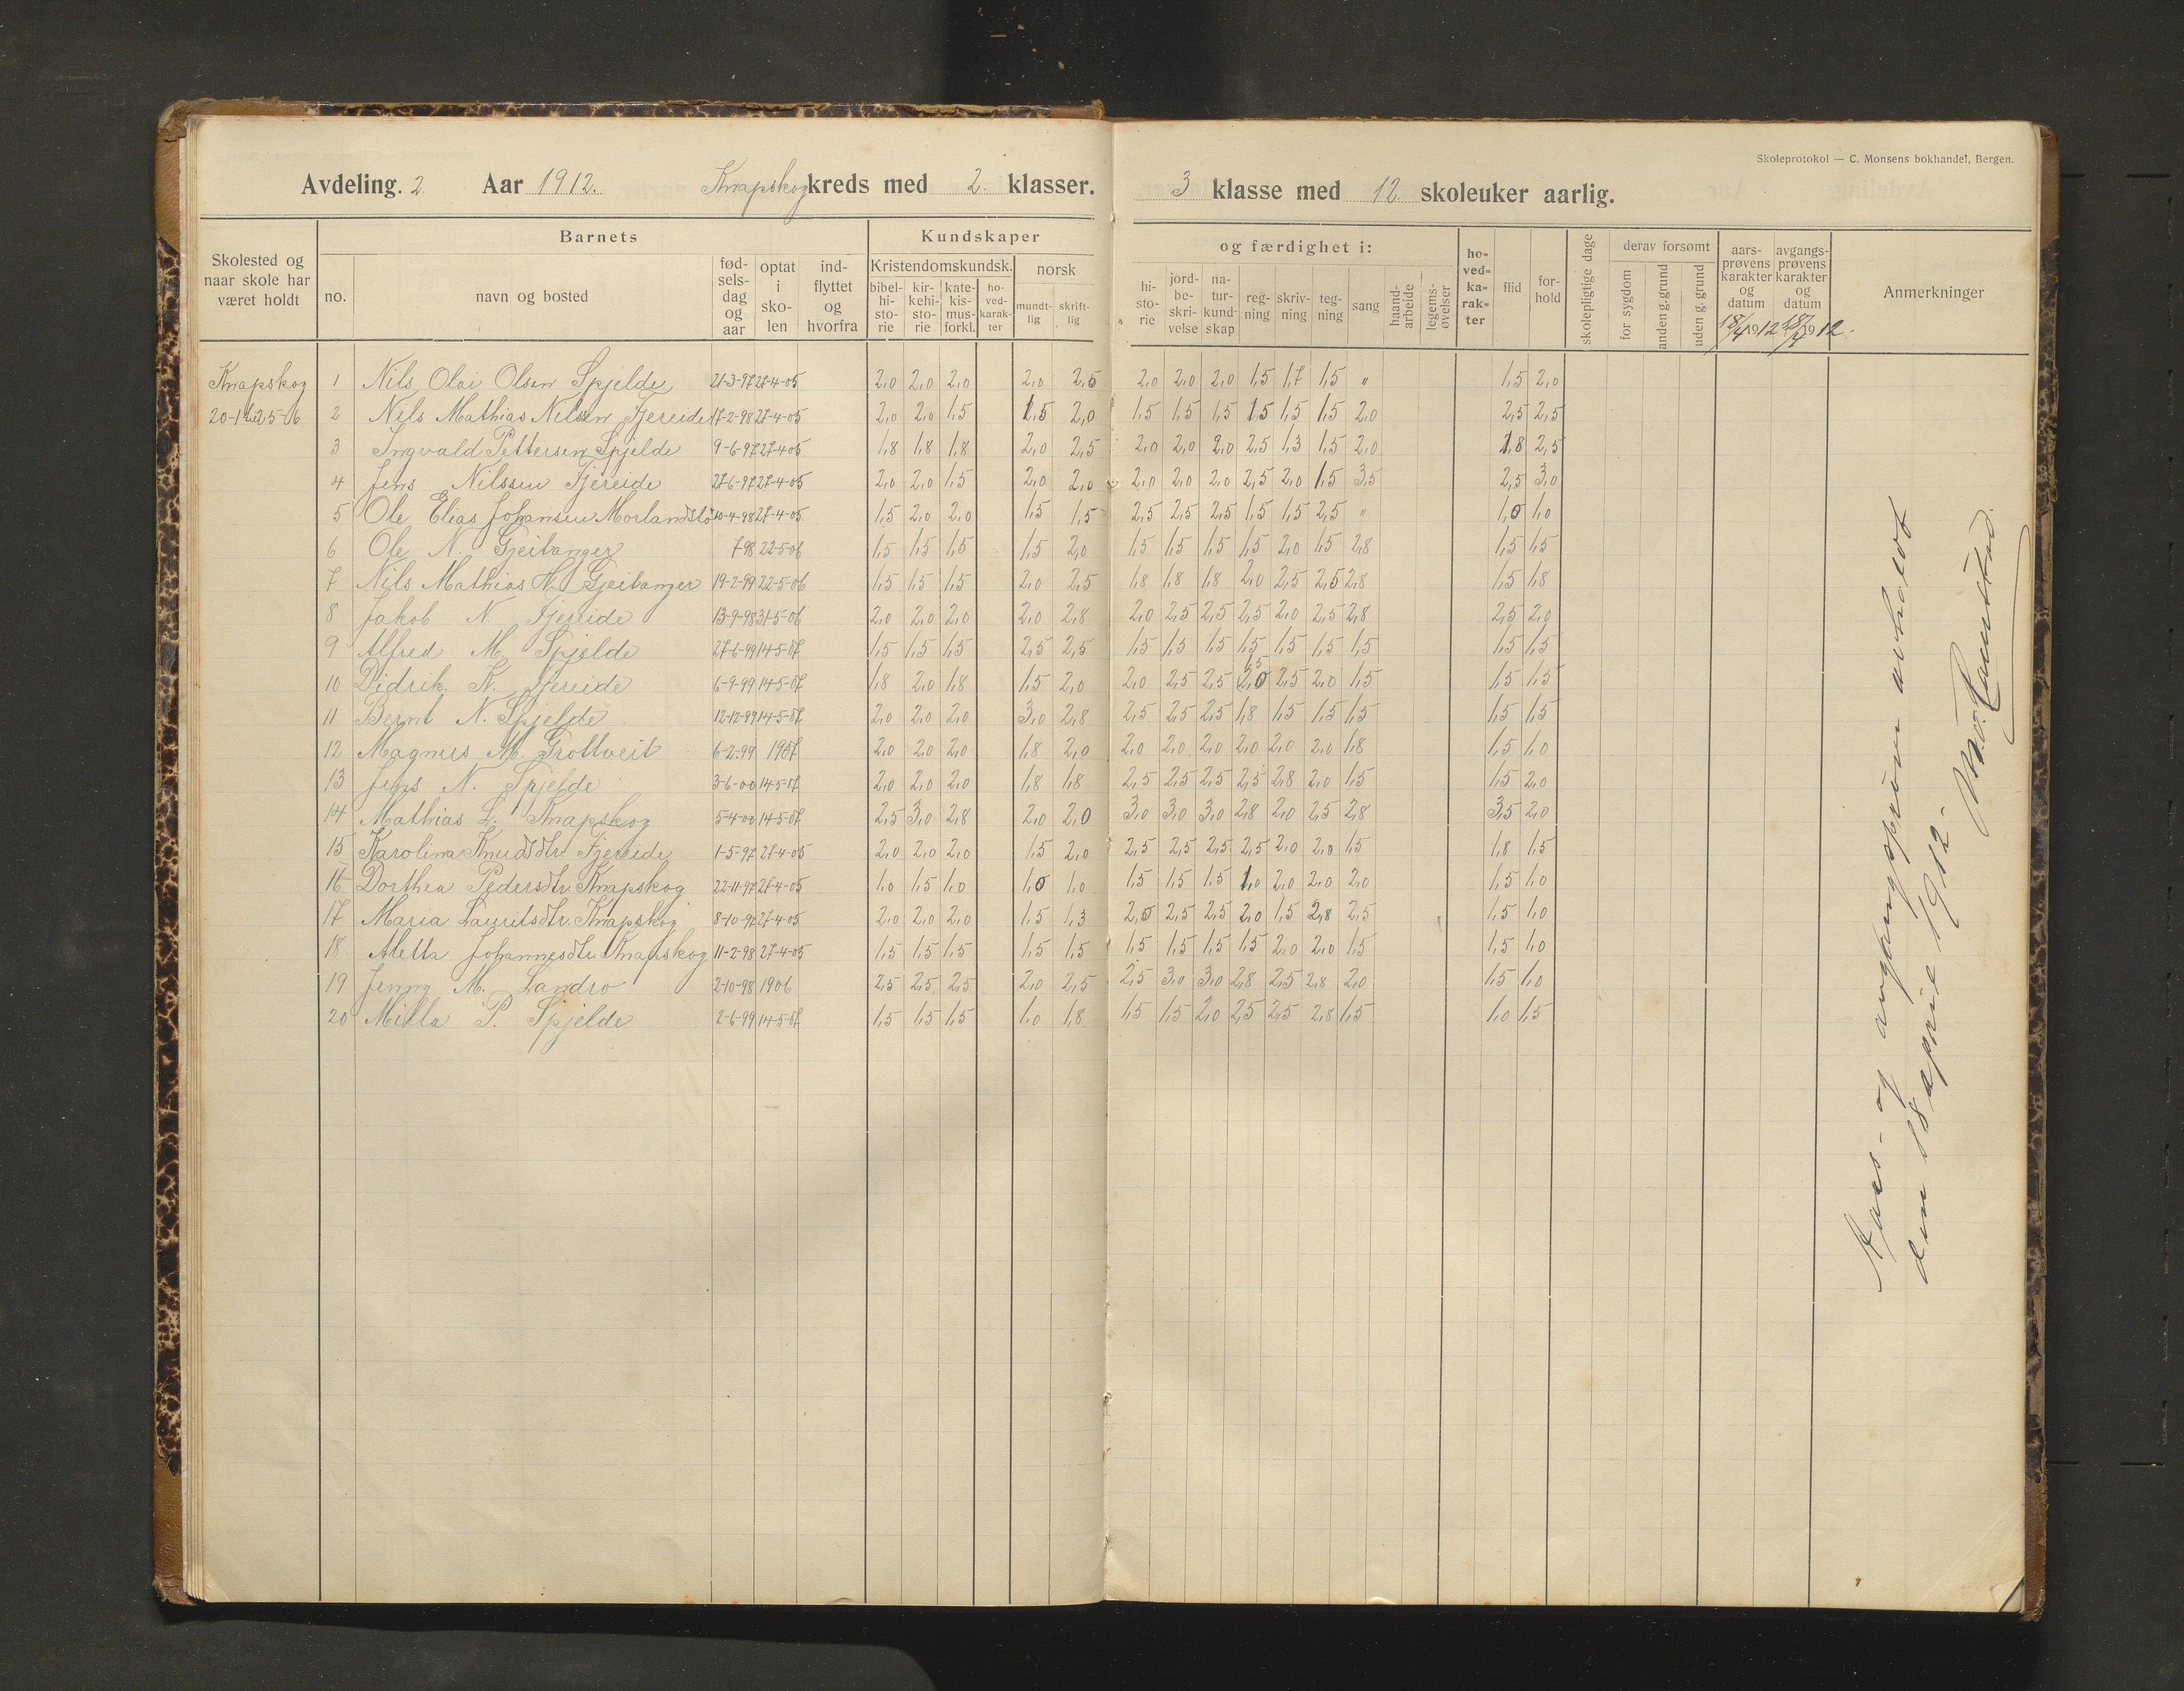 Skoleprotokol — C. Monsens bokhandel, Bergen.
Avdeling. 2 Aar 1912. Knapskog kreds med 2. klasser. 3 klasse med 12. skoleuker aarlig.
Skolested og naar skole har været holdt
Barnets
no.
navn og bosted
fød-sels-dag og aar
optat i sko-len
ind-flyttet og hvorfra
Kundskaper og færdighet i:
Kristendomskundsk.
bibel-hi-sto-rie
kir-kehi-sto-rie
kate-kis-mus-forkl.
ho-ved-karak-ter
norsk
mundt-lig
skrift-lig
hi-sto-rie
jord-be-skri-velse
na-tur-kund-skap
reg-ning
skriv-ning
teg-ning
sang
haand-arbeide
legems-øvelser
ho-ved-ka-rak-ter
flid
for-hold
skolepligtige dage
derav forsømt
for sygdom
anden g. grund
uden g. grund
aars-prøvens karakter og datum
18/4 1912
avgangs-prøvens karakter og datum
18/4 1912.
Anmerkninger
Knapskog 1 Nils Olai Olsen Spjelde 21-3-97 27-4-05 2,0 2,0 2,0 2,0 2,5 2,0 2,0 2,0 1,5 1,7 1,5 " 1,5 2,0
20-1 til 25-6 2 Nils Mathias Nilsen Fjereide 17-2-98 27-4-05 2,0 2,0 1,5 1,5 2,0 1,5 1,5 1,5 1,5 1,5 1,5 2,0 2,5 2,5
3 Ingvald Pettersen Spjelde 9-6-97 27-4-05 1,8 1,8 1,8 2,0 2,5 2,0 2,0 2,0 2,5 1,3 1,5 2,0 1,8 2,5
4 Jens Nilssen Fjereide 27-6-97 27-4-05 2,0 2,0 1,5 2,0 2,0 2,0 2,0 2,0 2,5 2,0 1,5 3,5 2,5 3,0
5 Ole Elias Johansen Morlandstø 10-4-98 27-4-05 1,5 2,0 2,0 1,5 1,5 2,5 2,5 2,5 1,5 1,5 2,5 " 1,0 1,0
6 Ole N. Gjeitanger 7 98 22-5-06 1,5 1,5 1,5 1,5 2,0 1,5 1,5 1,5 1,5 2,0 1,5 2,8 1,5 1,5
7 Nils Mathias H. Gjeitanger 19-2-99 22-5-06 1,5 1,5 1,5 2,0 2,5 1,8 1,8 1,8 2,0 2,5 2,5 2,8 1,5 1,8
8 Jakob N. Fjereide 13-9-98 31-5-06 2,0 2,0 2,0 2,0 2,8 2,0 2,5 2,5 2,5 2,0 2,5 2,8 2,5 2,0
9 Alfred M. Spjelde 27-6-99 14-5-07 1,5 1,5 1,5 2,5 2,5 1,5 1,5 1,5 1,5 1,5 1,5 1,5 1,5 1,5
10 Didrik. K. Fjereide 6-9-99 14-5-07 1,8 2,0 1,8 1,5 2,0 2,0 2,5 2,5 1,5 2,0 2,5 2,0 1,5 1,5 1,5
11 Bernt N. Spjelde 12-12-99 14-5-07 2,0 2,0 2,0 3,0 2,8 2,5 2,5 2,5 1,8 1,5 1,5 1,5 1,5 1,5
12 Magnus M. Trottveit 6-2-99 1907 2,0 2,0 2,0 1,8 2,0 2,0 2,0 2,0 2,0 2,0 2,0 1,8 1,5 1,0
13 Jens N. Spjelde 3-6-00 14-5-07 2,0 2,0 2,0 1,8 1,8 2,5 2,5 2,5 2,5 2,8 2,0 1,5 1,5 2,0
14 Mathias L. Knapskog 5-4-00 14-5-07 2,5 3,0 2,8 2,0 2,0 3,0 3,0 3,0 2,8 2,0 2,5 2,8 3,5 2,0
15 Karolina Knudsdtr. Fjereide 1-5-97 27-4-05 2,0 2,0 2,0 1,5 2,0 2,5 2,5 2,5 2,5 2,0 2,0 1,5 1,8 1,5
16 Dorthea Pedersdtr. Knapskog 22-11-97 27-4-05 1,0 1,5 1,0 1,0 1,0 1,5 1,5 1,5 1,0 2,0 2,0 2,0 1,5 1,0
17 Maria Lauritsdtr. Knapskog 8-10-97 27-4-05 2,0 2,0 2,0 1,5 1,3 2,5 2,5 2,5 2,0 1,5 2,8 2,5 1,5 1,0
18 Aletta Johannesdtr. Knapskog 11-2-98 27-4-05 1,5 1,5 1,5 1,5 1,5 1,5 1,5 1,5 1,5 2,0 2,0 1,5 1,5 1,0
19 Jenny M. Landro 2-10-98 1906 2,5 2,5 2,5 2,0 2,5 2,5 3,0 3,0 2,8 2,5 2,8 2,0 1,5 1,0
20 Milla P. Spjelde 2-6-99 14-5-07 1,5 1,5 1,5 1,0 1,8 1,5 1,5 2,0 2,5 2,5 2,8 1,5 1,0 1,5
Aars- og avgangsprøven avholdt
den 18 april 1912.